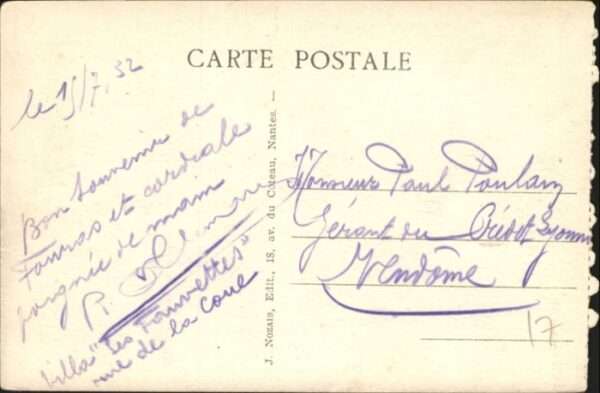 CARTE POSTALE
le 15/7.32
Bon souvenir de
Fouras et cordiale
poignée de main
R.
Villa "Les Fauvettes"
rue de la Coue
J. Nozais, Edit., 18, av. du Coteau, Nantes. —
Monsieur Paul Poulain
Gérant du Crédit Lyonnais
Vendôme
17